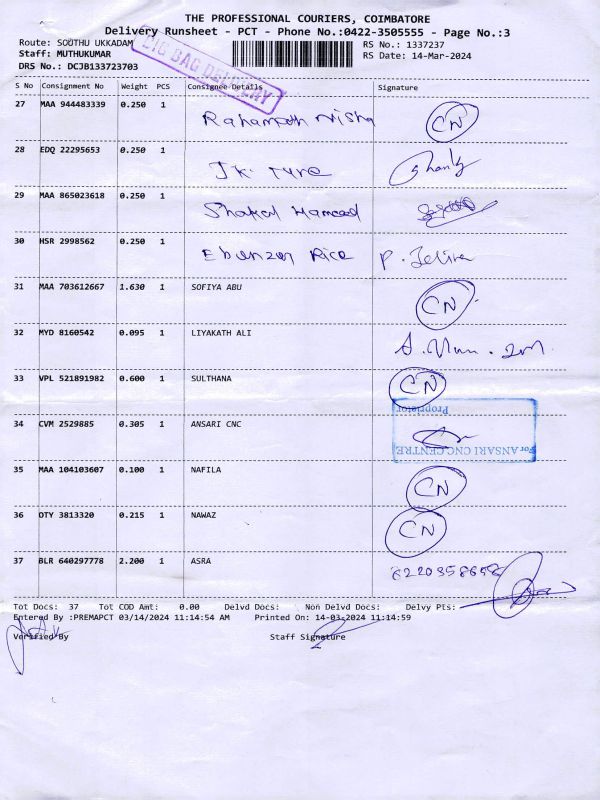 THE PROFESSIONAL COURIERS, COIMBATORE
Delivery Runsheet - PCT - Phone No.:0422-3505555 - Page No.:3
Route: SOUTHU UKKADAM
RS No.: 1337237
Staff: MUTHUKUMAR
RS Date: 14-Mar-2024
DRS No.: DCJB133723703
BIG BAG DELIVERY
S No Consignment No Weight PCS Consignee Details Signature
27 MAA 944483339 0.250 1 Rahamath Nisha CN
28 EDQ 22295653 0.250 1 J.K. Tyre
29 MAA 865023618 0.250 1 Shakul Hameed
30 HSR 2998562 0.250 1 Ebenzar Rice
31 MAA 703612667 1.630 1 SOFIYA ABU CN
32 MYD 8160542 0.095 1 LIYAKATH ALI
33 VPL 521891982 0.600 1 SULTHANA CN
Proprietor
34 CVM 2529885 0.305 1 ANSARI CNC
For ANSARI CNC CENTRE
35 MAA 104103607 0.100 1 NAFILA CN
36 OTY 3813320 0.215 1 NAWAZ CN
37 BLR 640297778 2.200 1 ASRA
Tot Docs: 37 Tot COD Amt: 0.00 Delvd Docs: Non Delvd Docs: Delvy Pts:
Entered By :PREMAPCT 03/14/2024 11:14:54 AM Printed On: 14-03-2024 11:14:59
Verified By Staff Signature